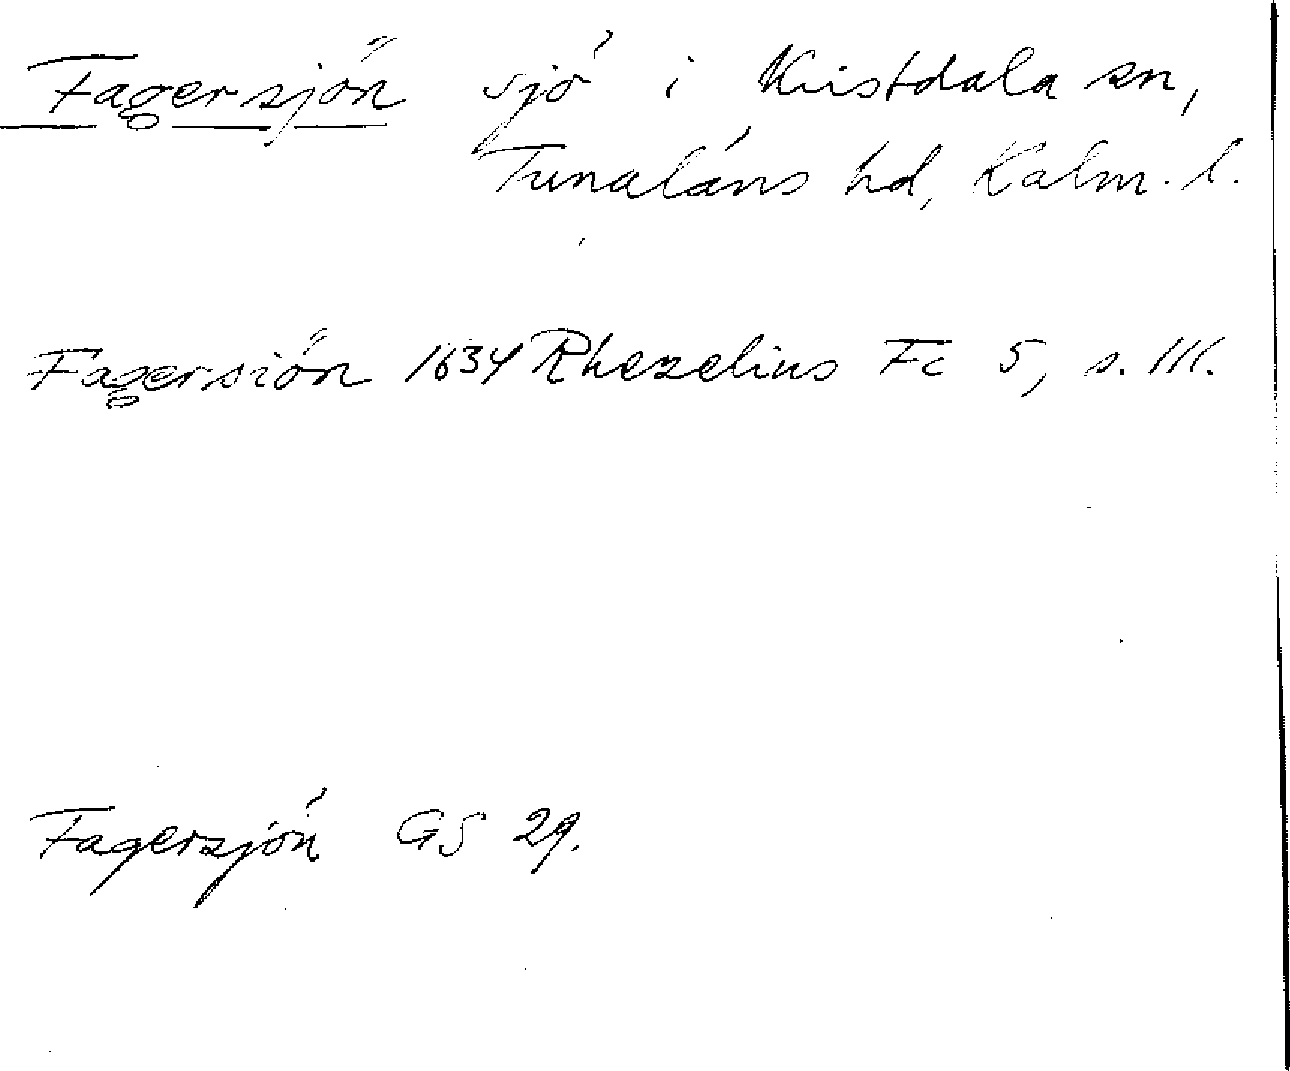 Fagersjön sjö i Kristdala sn,
Tunaläns hd, Kalm. l.
Fagersiön 1634 Rhezelius Fc 5, s. 111.
Fagersjön GS 29.